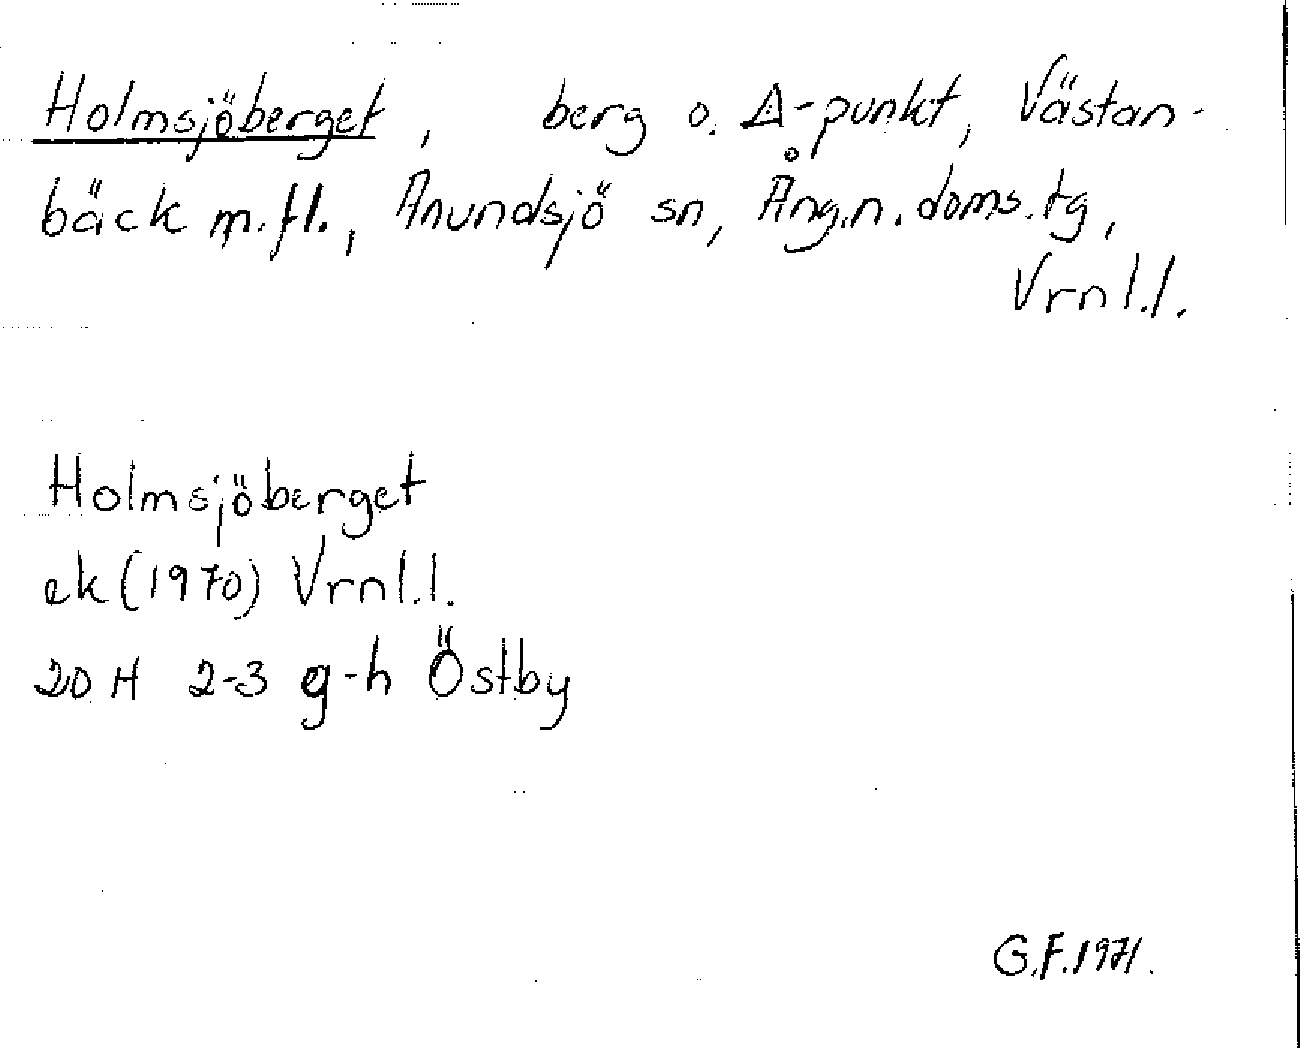 Holmsjöberget, berg o. Δ-punkt, Västan-
bäck m.fl., Anundsjö sn, Ång.n.doms.tg,
Vrnl.l.
Holmsjöberget
ek (1970) Vrnl.l.
20 H 2-3 g-h Östby
G.F.1971.